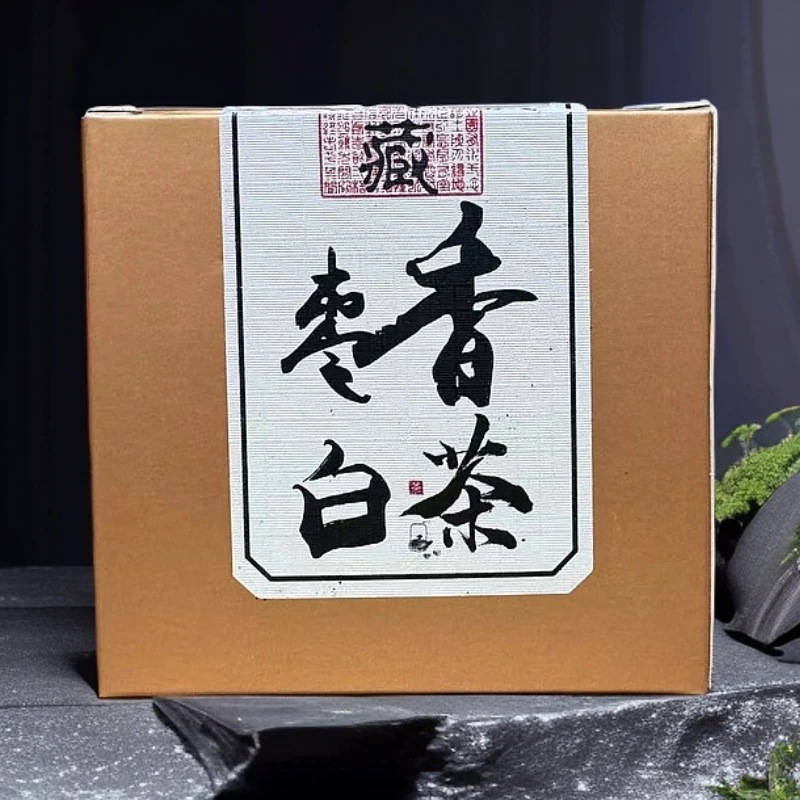 藏
枣香
白茶